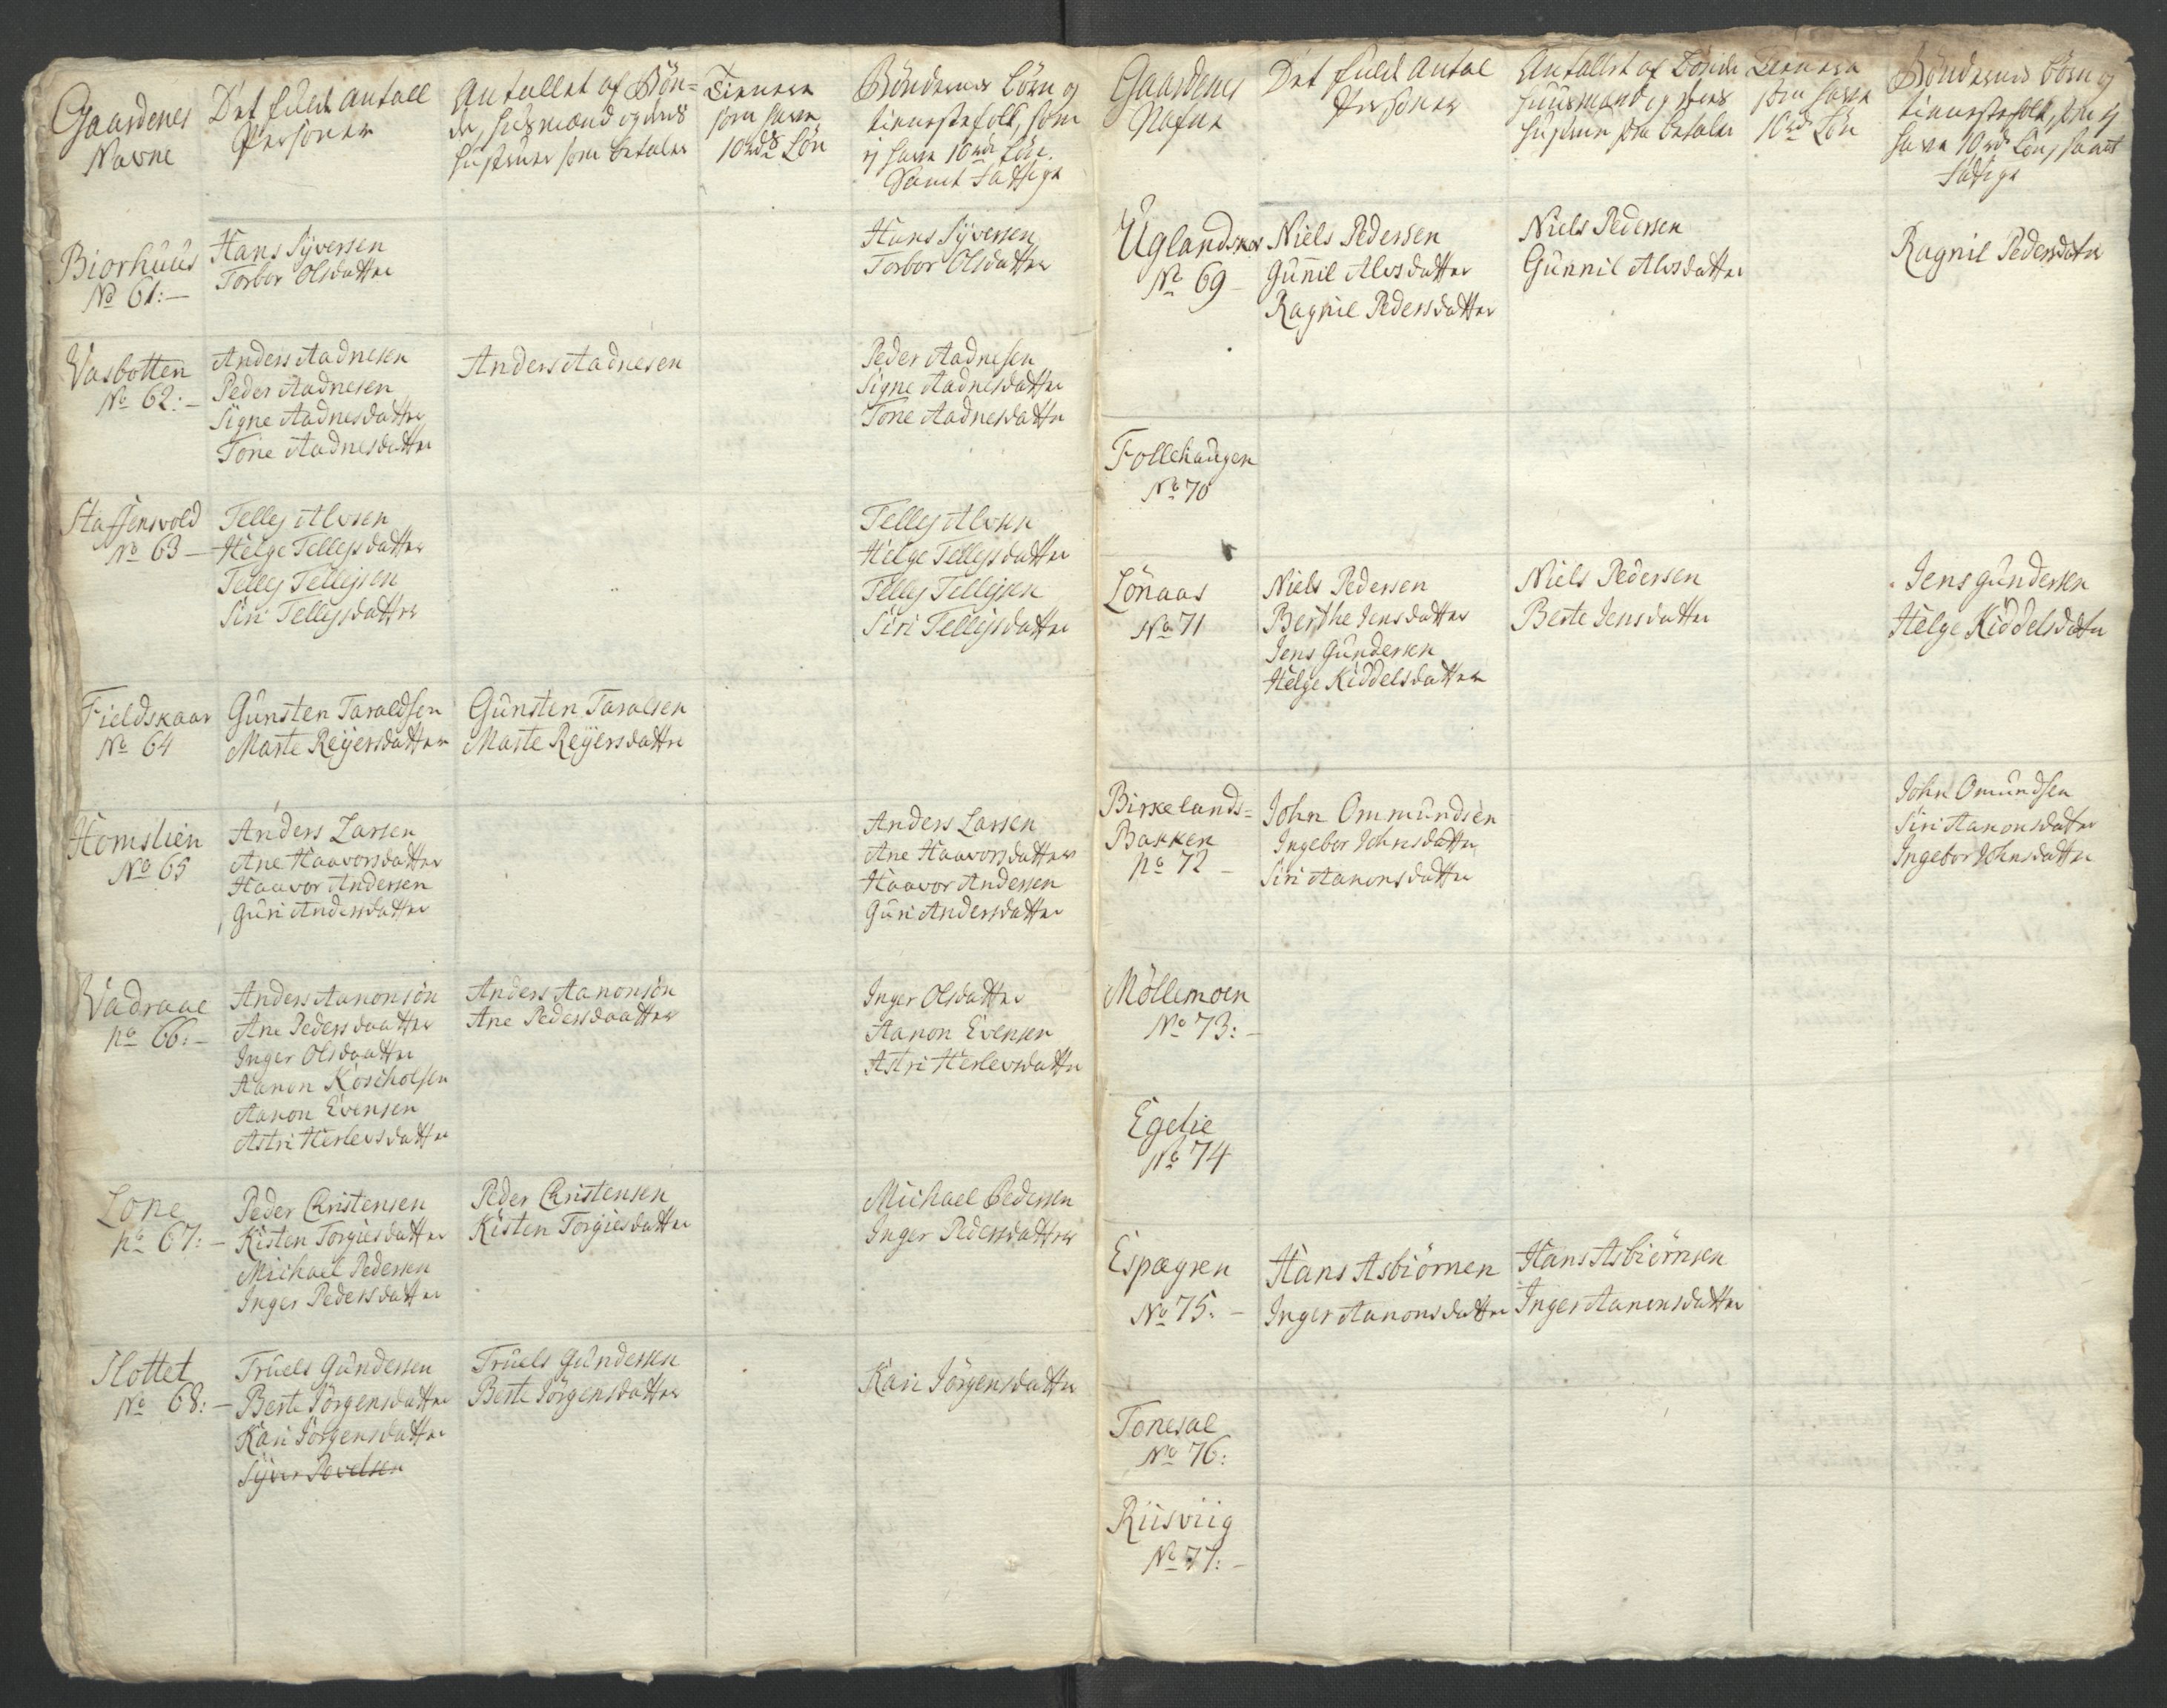 Gaardenes
Navne
Det fulde antall
Personer
Antallet af Bön-
der, Husmænd og deres
Hustruer som betaler
Tienere
som have
10 rdrs Lön
Böndernes Börn og
tienestefolk, som
ej have 10 rdr Lön.
Samt Fattige
Biorhuus
No 61:-
Hans Syversen
Torbor Olsdatter
Hans Syversen
Torbor Olsdatter
Vasbotten
No 62:-
Anders Aadnesen
Peder Aadnesen
Signe Aadnesdatter
Tone Aadnesdatter
Anders Aadnesen
Peder Aadnesen
Signe Aadnesdatter
Tone Aadnesdatter
Staffensvold
No 63-
Tellej Alvsen
Helge Tellejsdatter
Tellej Tellejsen
Siri Tellejsdatter
Tellej Alvsen
Helge Tellejsdatter
Tellej Tellejsen
Siri Tellejsdatter
Fieldskaar
No 64
Gunsten Taraldsen
Marte Reyersdatter
Gunsten Taralsen
Marte Reyersdatter
Homslien
No 65
Anders Larsen
Ane Haavorsdatter
Haavor Andersen
Guri Andersdatter
Anders Larsen
Ane Haavorsdatter
Haavor Andersen
Guri Andersdatter
Vadraae
no 66:-
Anders Aanonsön
Ane Pedersdaatter
Inger Olsdaatter
Aanon
Aanon Evensen
Astri Herlevsdatter
Anders Aanonsön
Ane Pedersdaatter
Inger Olsdatter
Aanon Evensen
Astri Herlevsdatter
Lone
no 67:-
Peder Christensen
Kisten Torgiesdatter
Michael Pedersen
Inger Pedersdatter
Peder Christensen
Kisten Torgiesdatter
Michael Pedersen
Inger Pedersdatter
Slottet
No 68:-
Truels Gundersen
Berte Jörgensdatter
Kari Jörgensdatter
Syver Povelsen
Truels Gundersen
Berte Jörgensdatter
Kari Jörgensdatter
Gaardenes
Nafne
Det fulde Antal
Personer
Antallet af Bönder
Huusmænd og deres
Hustruer som betaler
Tienere
som have
10 rdr Lön
Böndernes Börn og
tienestefolk, som ej
have 10 rdr Lön, samt
Fattige
Uglandskar
No 69-
Niels Pedersen
Gunnil Alvsdatter
Ragnil Pedersdatter
Niels Pedersen
Gunnil Alvsdatter
Ragnil Pedersdatter
Follehaugen
No 70
Lönaas
No 71
Niels Pedersen
Berthe Jensdatter
Jens Gundersen
Helge Kiddelsdatter
Niels Pedersen
Berte Jensdatter
Jens Gundersen
Helge Kiddelsdatter
Birkelands-
Bakken
no 72-
John Ommundsen
Ingebor Johnsdatter
Siri Aanonsdatter
John Omundsen
Siri Aanonsdatter
Ingebor Johnsdatter
Möllemoen
No 73:-
Egelie
No 74
Espægren
No 75:-
Hans Asbiörnen
Inger Aanonsdatter
Hans Asbiörnsen
Inger Aanonsdatter
Tonesal
No 76:
Riisviig
No 77:-